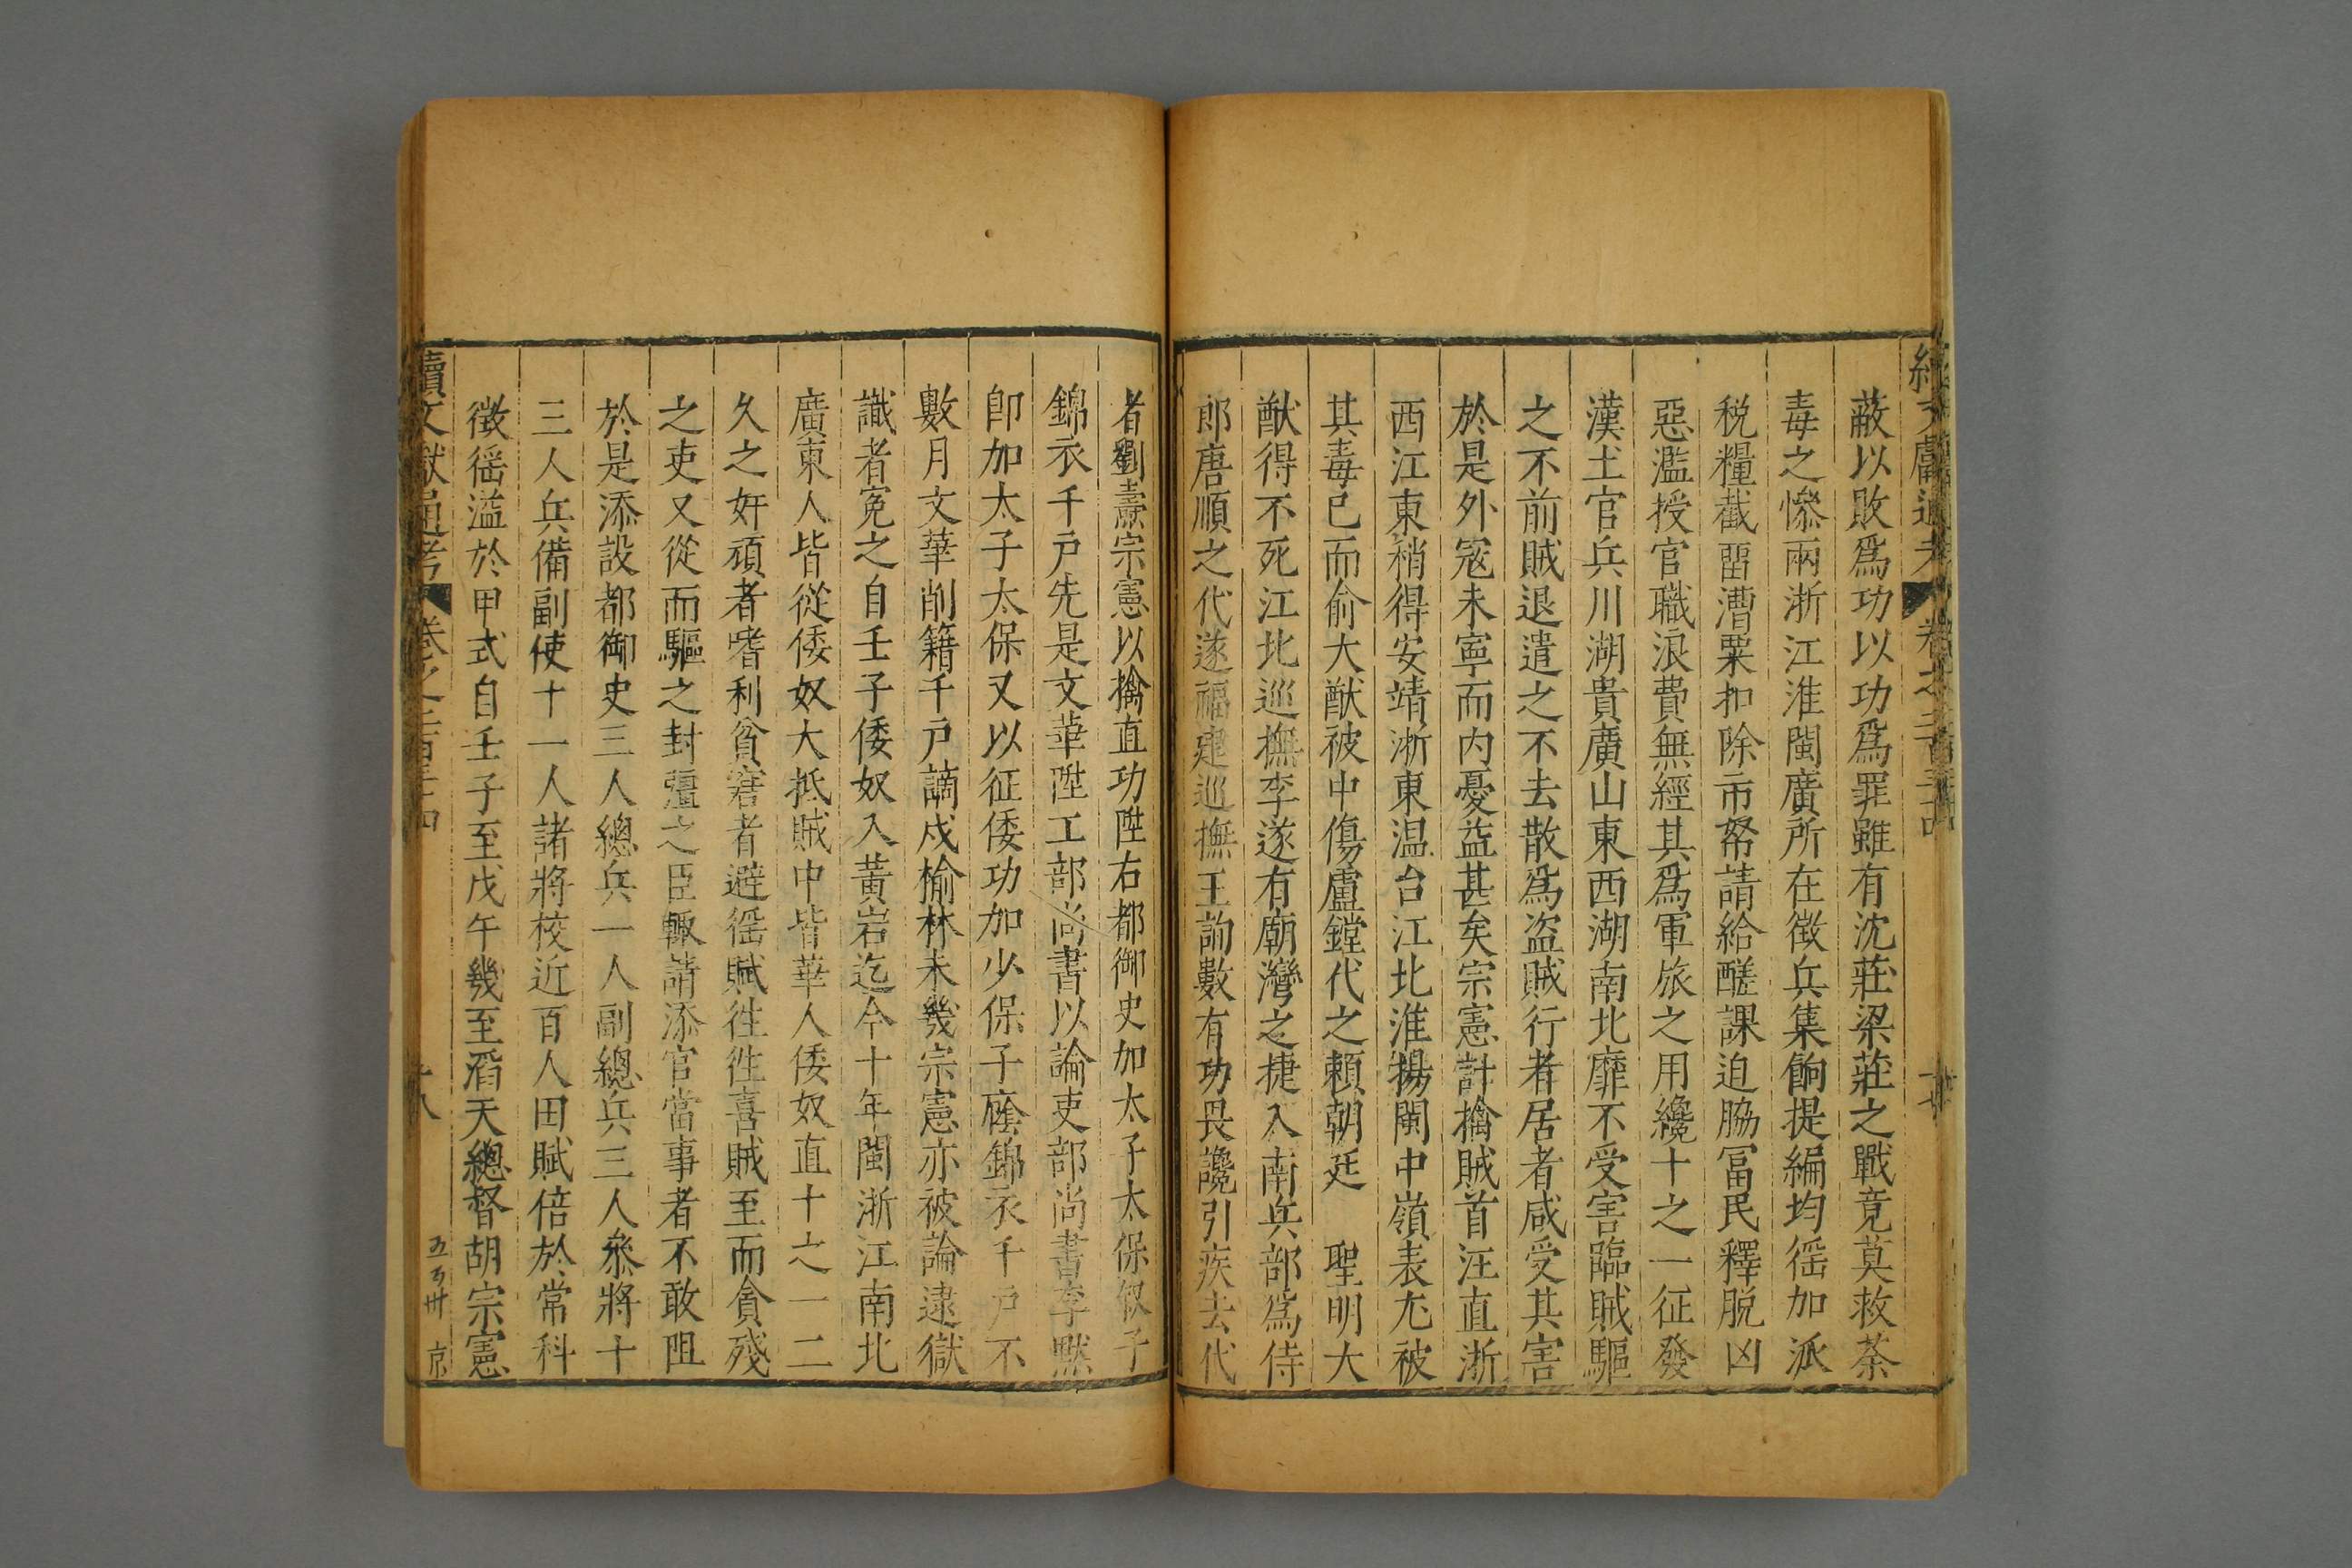 蔽以敗爲功以功爲罪雖有沈莊梁莊之戰竟莫救荼
毒之慘兩浙江淮閩廣所在徵兵集餉提編均徭加派
税糧截留漕粟扣除市帑請給醝課迫脇冨民釋脱凶
惡濫授官職浪費無經其爲軍旅之用纔十之一征發
漢土官兵川湖貴廣山東西湖南北靡不受害臨賊驅
之不前賊退遣之不去散爲盗賊行者居者咸受其害
於是外寇未寧而内憂益甚矣宗憲計擒賊首汪直浙
西江東稍得安靖浙東温台江北淮揚閩中嶺表尢被
其毒已而俞大猷被中傷盧鏜代之頼朝廷　聖明大
猷得不死江北巡撫李遂有廟灣之捷入南兵部爲侍
郎唐順之代遂福建巡撫王詢數有功畏讒引疾去代
者劉燾宗憲以擒直功陞右都御史加太子太保叙子
錦衣千户先是文華陞工部尚書以論吏部尚書李黙
卽加太子太保又以征倭功加少保子廕錦衣千户不
數月文華削籍千户謫戍榆林未幾宗憲亦被論逮獄
識者寃之自壬子倭奴入黄岩迄今十年閩浙江南北
廣東人皆從倭奴大抵賊中皆華人倭奴直十之一二
久之奸頑者嗜利貧窘者避徭賦徃徃喜賊至而貪殘
之吏又從而驅之封疆之臣輙請添官當事者不敢阻
於是添設都御史三人總兵一人副總兵三人叅將十
三人兵備副使十一人諸將校近百人田賦倍於常科
徵徭溢於甲式自壬子至戊午幾至滔天總督胡宗憲
續文獻通考　卷之二百三十四
十八